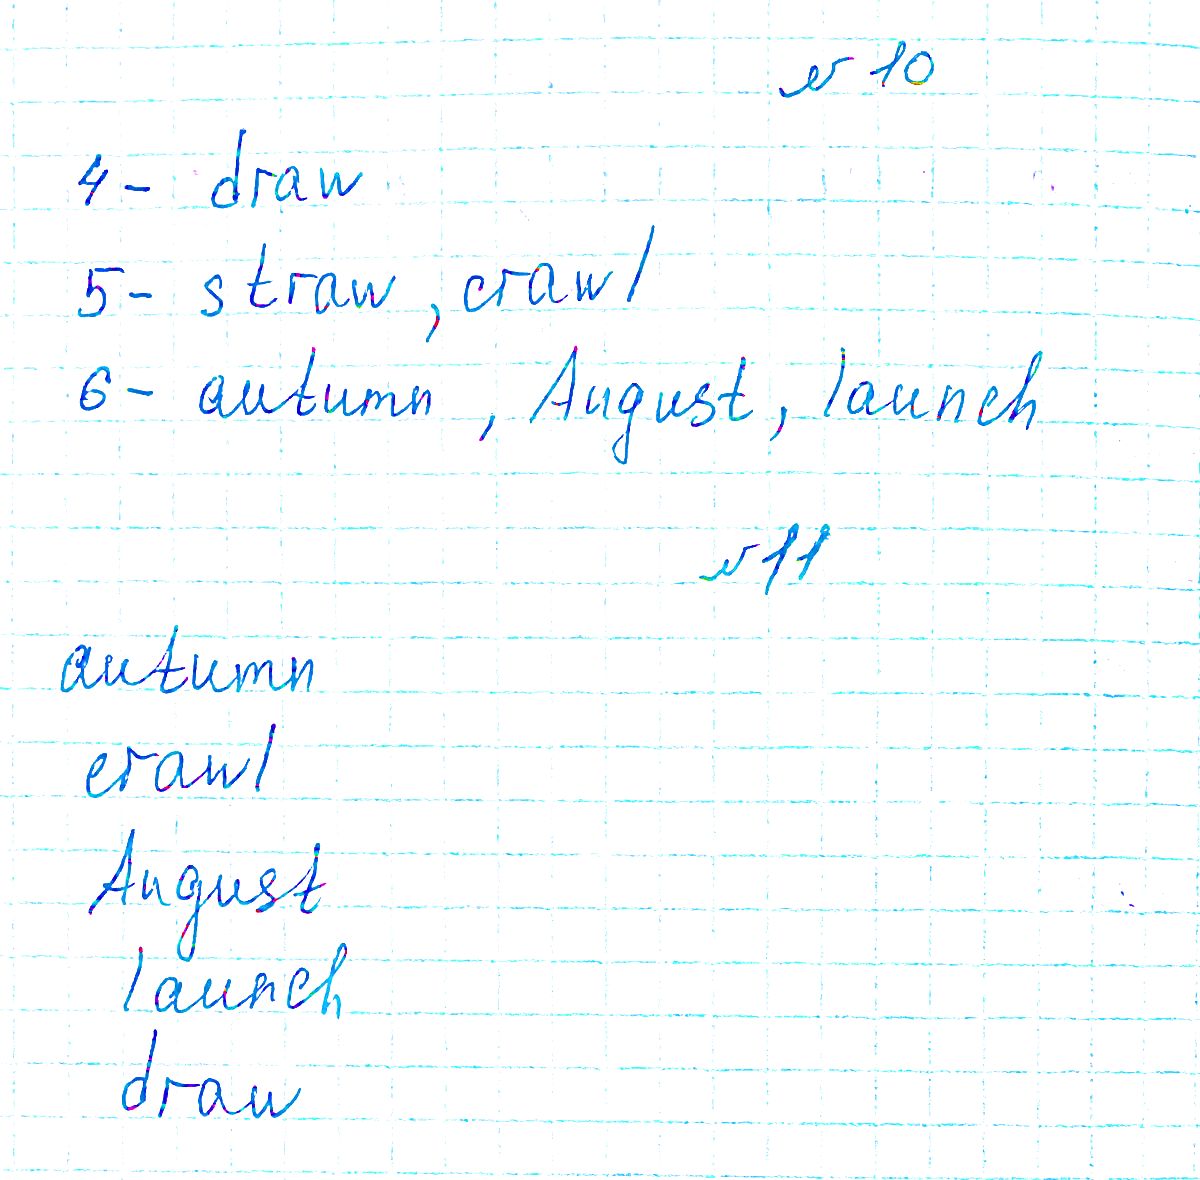 № 10
4 - draw
5 - straw, crawl
6 - autumn, August, launch
№ 11
autumn
crawl
August
launch
draw